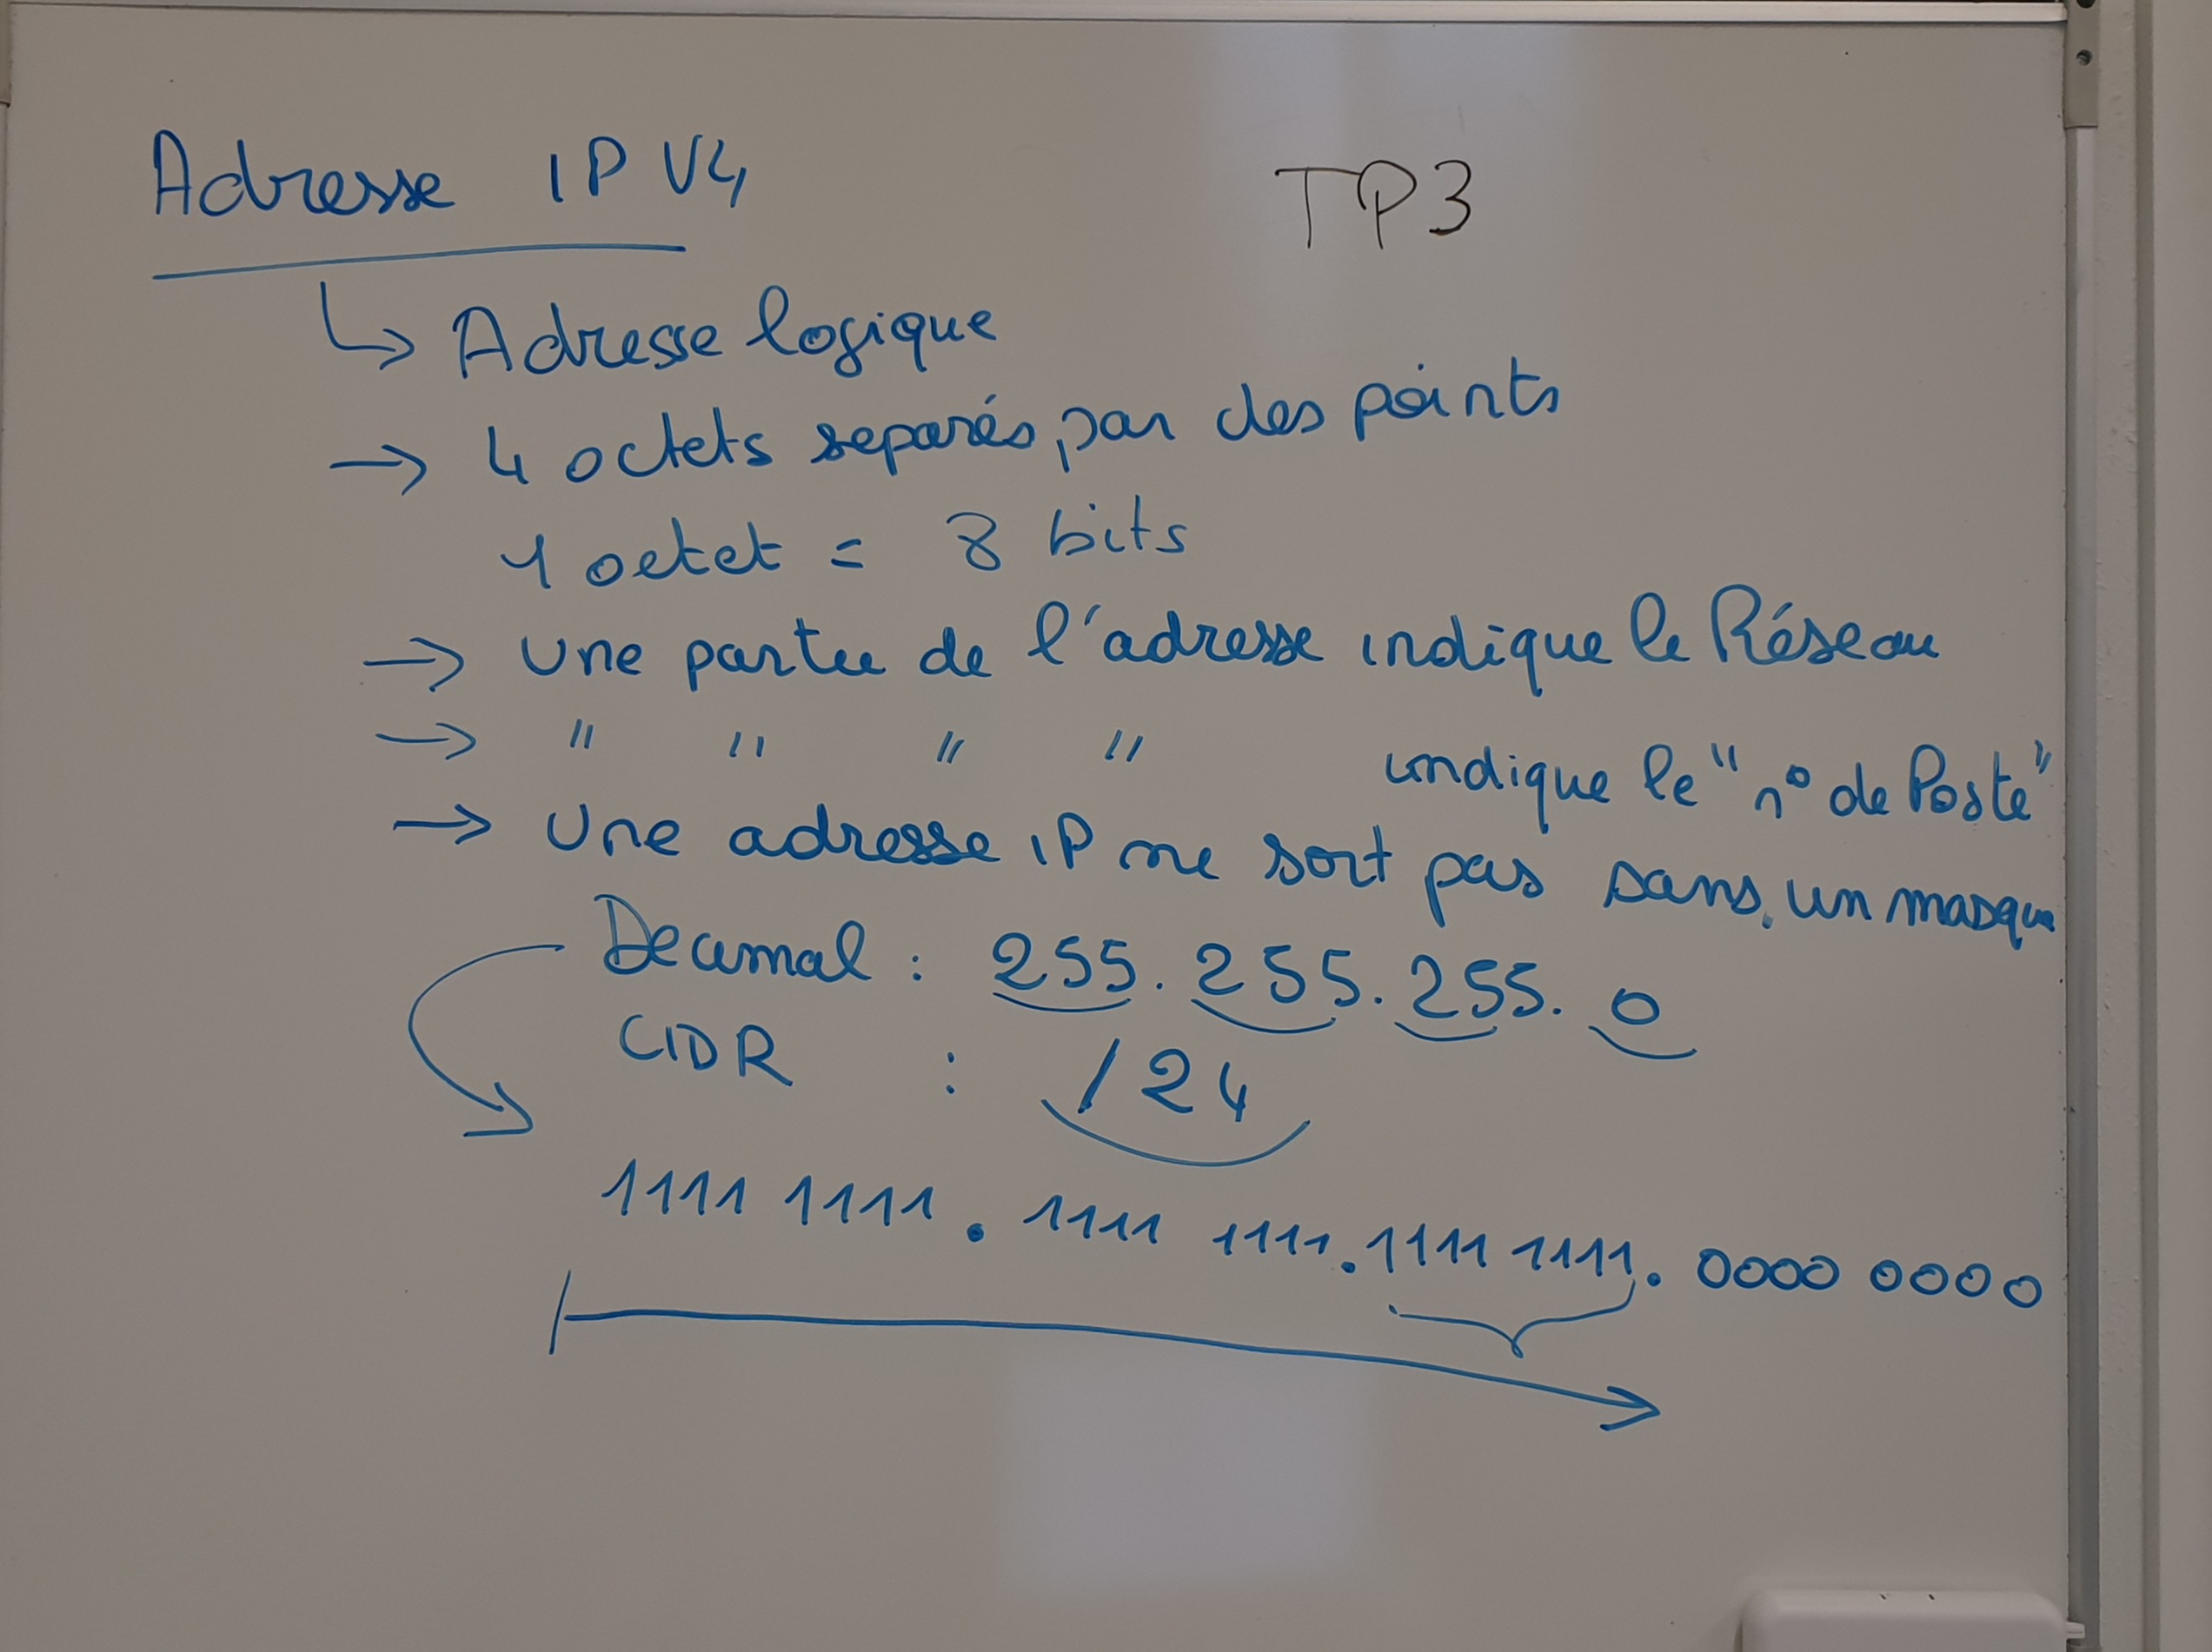 Adresse IPV4
TP3
↳ Adresse logique
→ 4 octets separés par des points
1 octet = 8 bits
→ Une partie de l'adresse indique le Réseau
→ " " " " indique le "n° de Poste"
→ Une adresse IP ne sort pas sans un masque
Decimal : 255.255.255.0
CIDR : /24
1111 1111 . 1111 1111 . 1111 1111 . 0000 0000